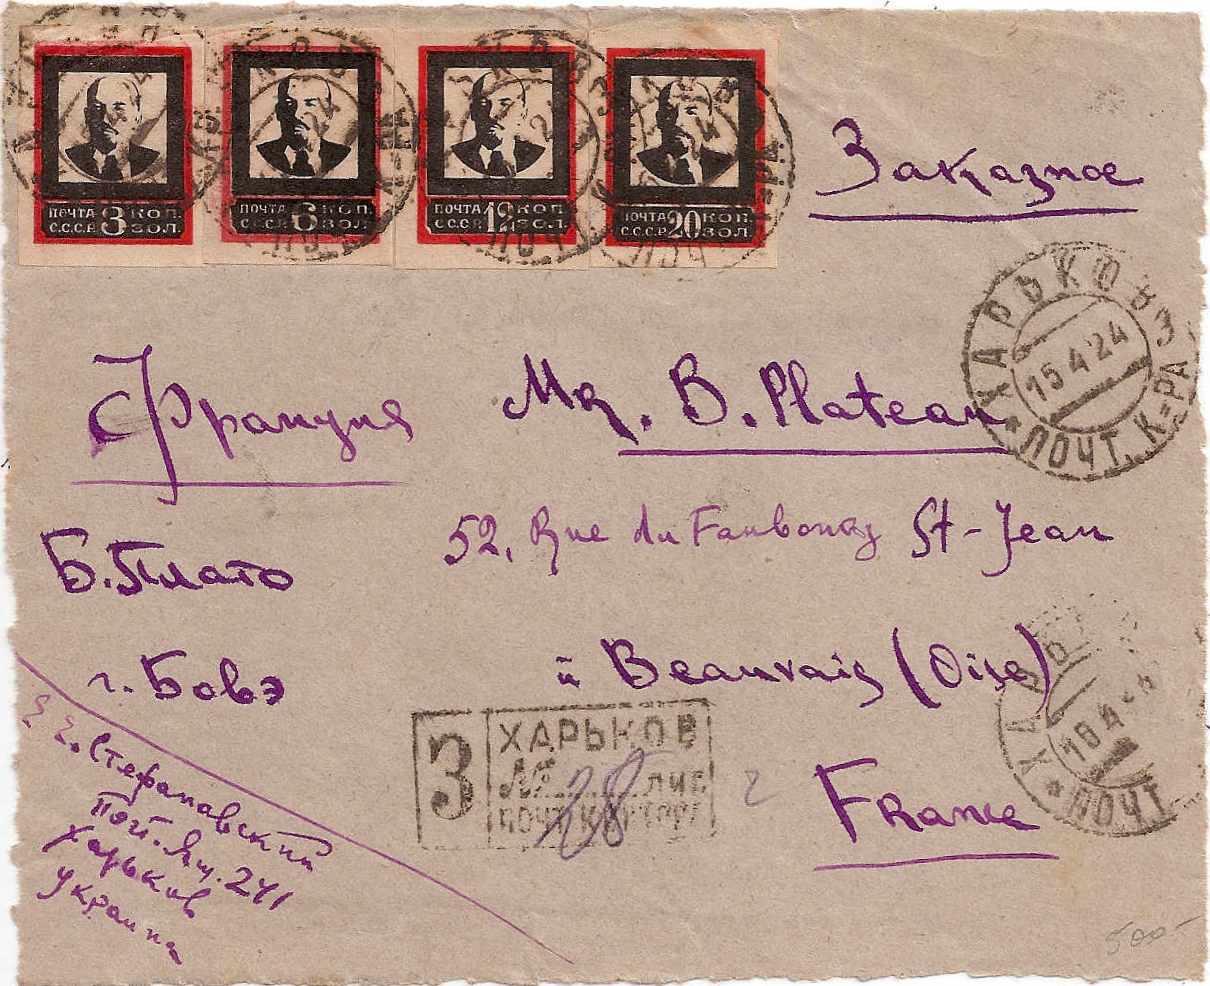 ПОЧТА 3 КОП.
С.С.С.Р. ЗОЛ.
ПОЧТА 6 КОП.
С.С.С.Р. ЗОЛ.
ПОЧТА 12 КОП.
С.С.С.Р. ЗОЛ.
ПОЧТА 20 КОП.
С.С.С.Р. ЗОЛ.
Заказное
ХАРЬКОВ
15 4 24
ПОЧТ. К-РА
Франция
Mr. B. Plateau
52, Rue du Faubourg St-Jean
Б. Плато
à Beauvais (Oise)
г. Бовэ
З ХАРЬКОВ
№ 28 лит
France
ПОЧТ
Стефановский
Почт. Ящ. 241
Харьков
Украина
500-